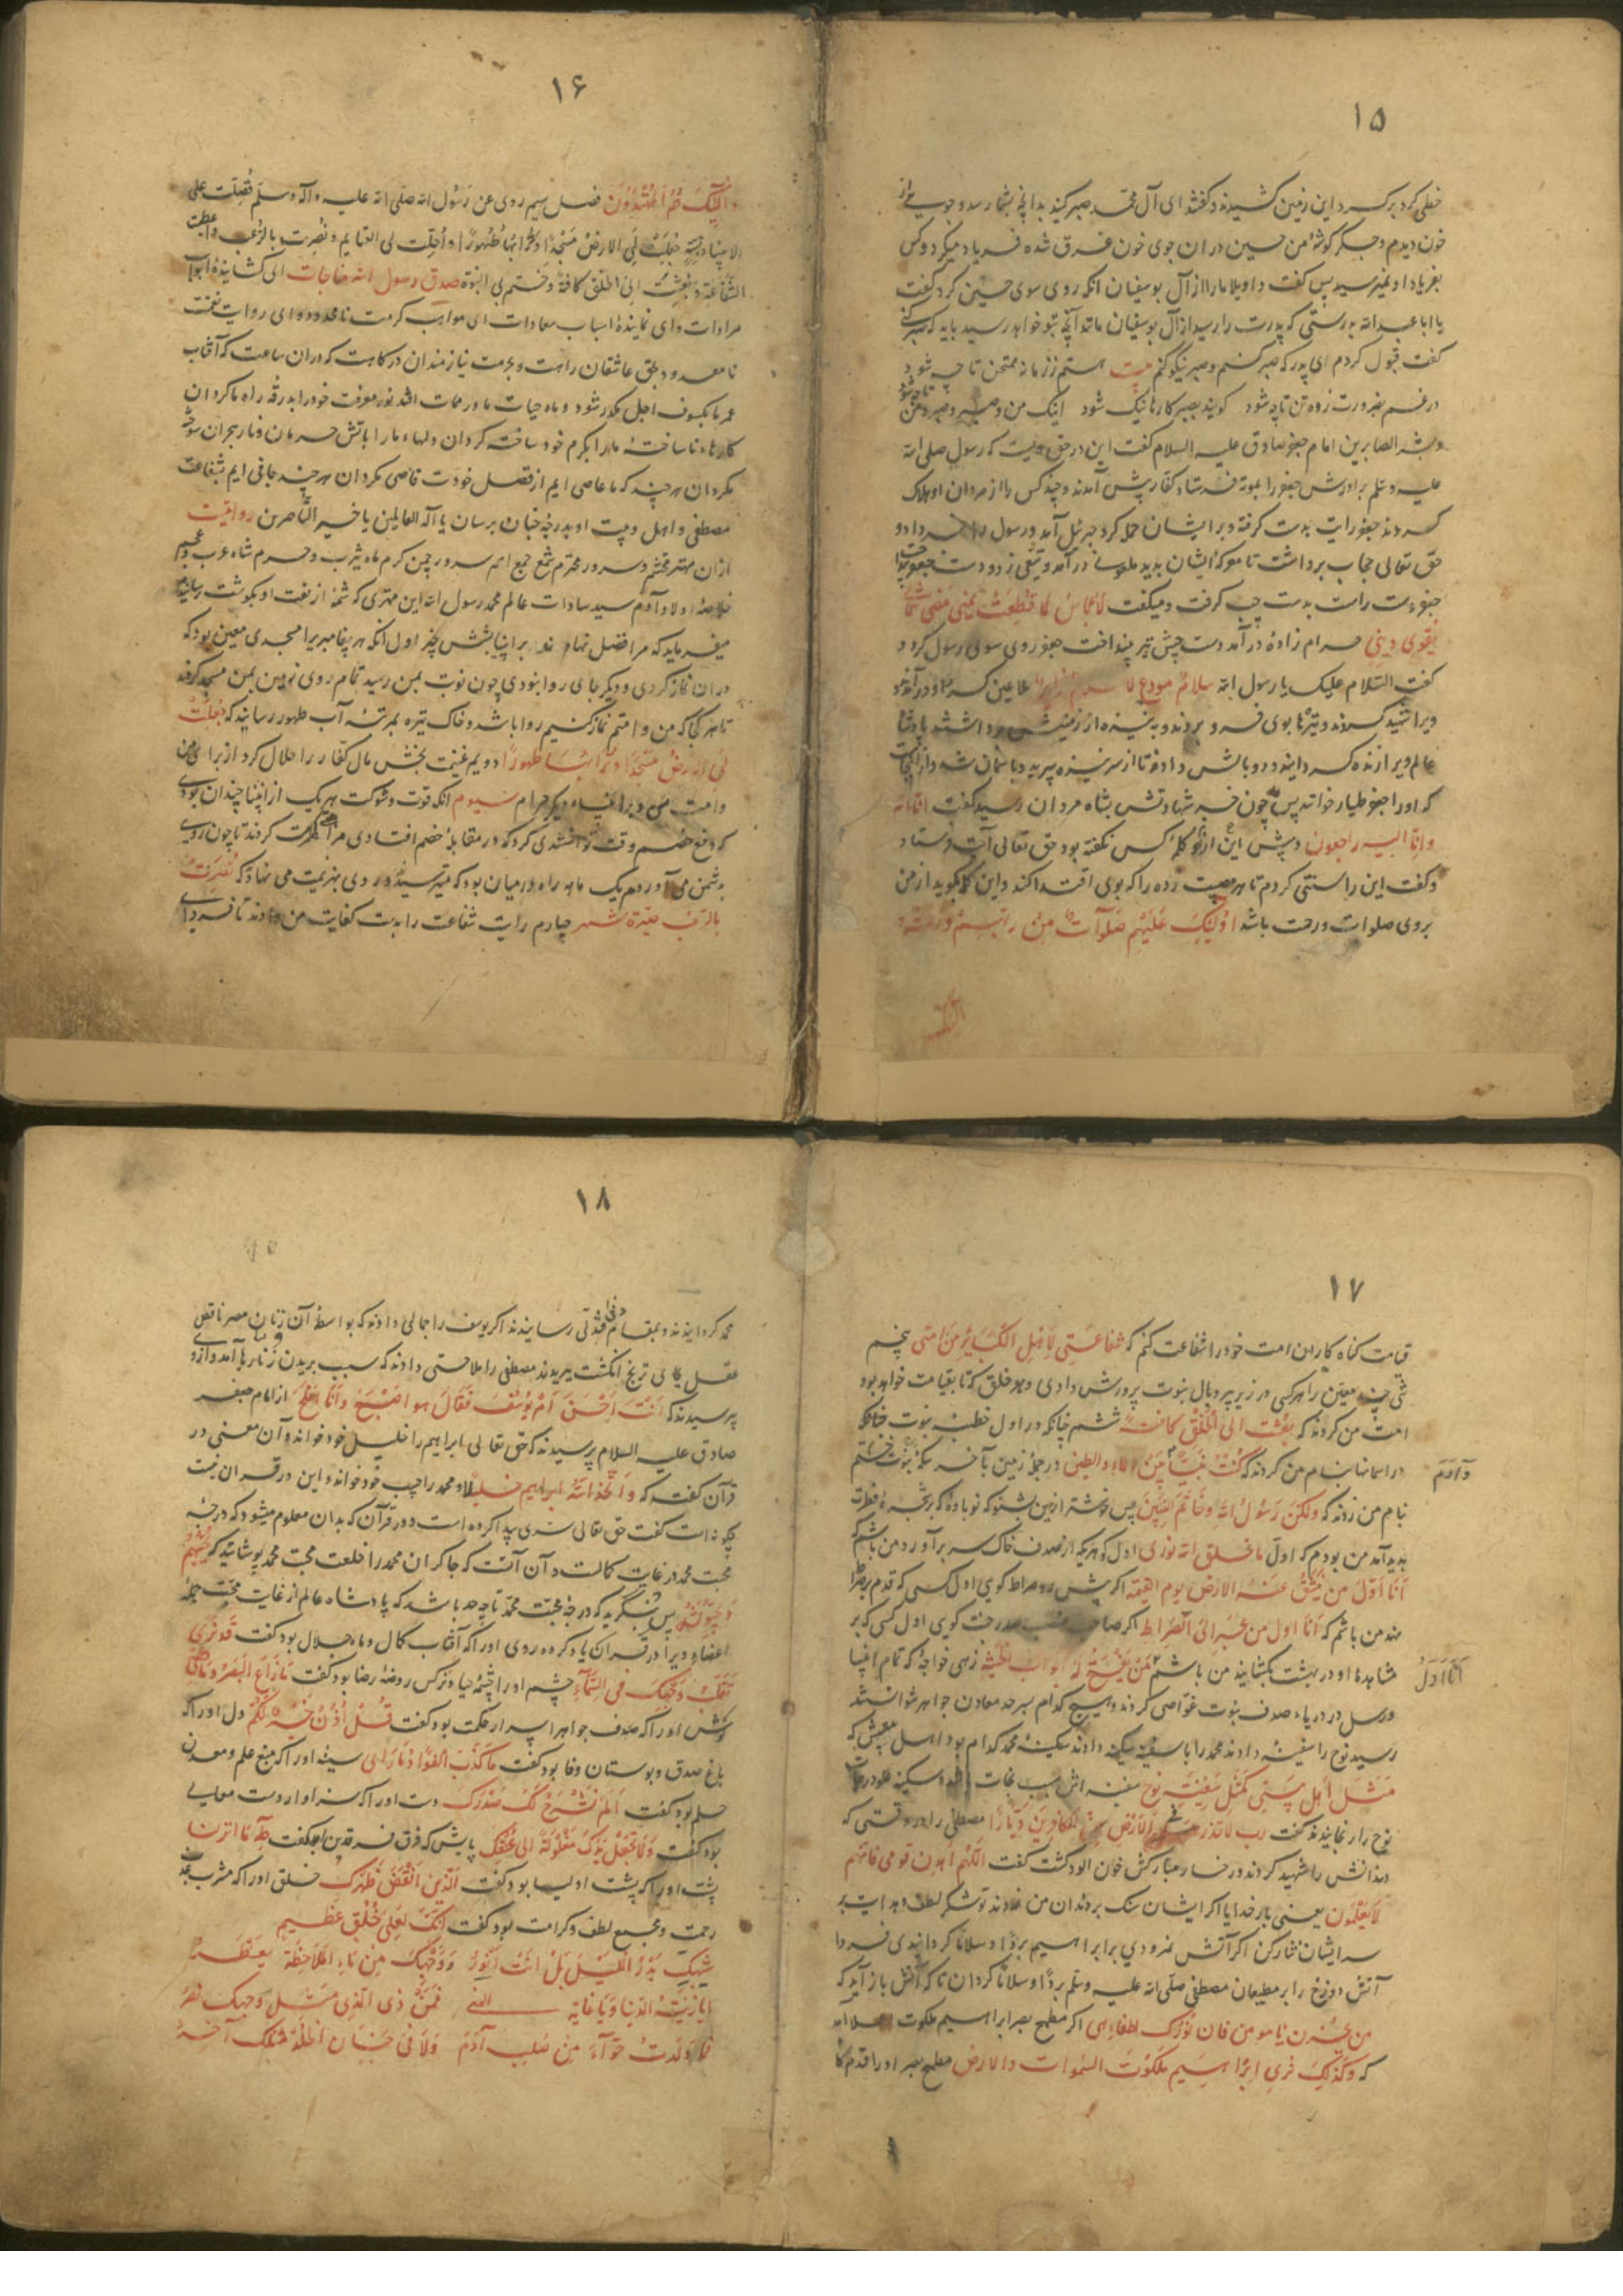 ۱۵
خطی کرد بر کرد این زمین کشیدند و گفتند ای آل محمد صبر کنید بدانچه بشما رسد و جوی پر از
خون دیدم و جگر گوشهٔ من حسین در ان جوی خون غرق شده فریاد میکرد و کس
بفریاد او نمیرسید پس گفت واویلا ما را از آل بوسفیان انکه روی سوی حسین کرد گفت
یا ابا عبدالله بدرستی که پدرت را رسید از آل بوسفیان مانند آنچه بتو خواهد رسید باید که صبر کنی
گفت قبول کردم ای پدر که صبر کنم و صبر نیکو کنم بیت هستم ز زمانه ممتحن تا چه شود
در غم بضرورت زده تن تا چه شود گویند بصبر کارها نیک شود اینک من و صبر و صبر و من تا چه شود
وبشر الصابرین امام جعفر صادق علیه السلام گفت این در حق ویست که رسول صلی الله
علیه و سلم برادرش جعفر را بموته فرستاد کفار پیش آمدند و چند کس را از مردان او هلاک
کردند جعفر رایت بدست گرفته و بر ایشان حمله کرد جبرئیل آمد و رسول را خبر داد و
حق تعالی حجاب برداشت تا معرکهٔ ایشان بدید ملعونی در آمد و تیغی زد و دست جعفر بینداخت
جعفر دست راست بدست چپ گرفت و میگفت لا باس لما قطعت یمنی مضی شمالا
یقوی دینی حرام زادهٔ در آمد دست چپش نیز بینداخت جعفر روی سوی رسول کرد و
گفت السلام علیک یا رسول الله سلام مودع لا طاعین گرد او در آمدند و
ویرا شهید کردند و نیزها بوی فرو بردند و به نیزه از زمینش برداشتند پادشاه
عالم ویرا زنده گردانید و دو بالش داد و تا از سر نیزه بپرید و باسمان شد و از انجاست
که او را جعفر طیار خوانند پس چون خبر شهادتش بشاه مردان رسید گفت انا لله
وانا الیه راجعون و پیش ازین این کلمه کس نگفته بود حق تعالی آیت فرستاد
و گفت این را سنتی کردم تا هر مصیبت زده را که بوی اقتدا کند و این کلمه بگوید از من
بروی صلوات و رحمت باشد اولئک علیهم صلوات من ربهم و رحمة و
۱۶
واولئک هم المهتدون فصل سیم روی عن رسول الله صلی الله علیه و آله وسلم فضلت علی
الانبیاء بستة جعلت لی الارض مسجدا و ترابها طهورا و احلت لی الغنایم و نصرت بالرعب و اعطیت
الشفاعة و بعثت الی الخلق کافة و ختم بی النبوة صدق رسول الله مناجات ای گشایندهٔ ابواب
مرادات و ای نمایندهٔ اسباب سعادات ای مواهب کرمت نامحدود و ای روایت نعمت
نامعدود بحق عاشقان راهت و بحرمت نیازمندان درگاهت که در ان ساعت که آفتاب
عمر ما بکسوف اجل مکدر شود و ماه حیات ما در ممات افتد نور معرفت خود را بدرقه راه ما گردان
کارهاء ناساخته ما را بکرم خود ساخته گردان و دلهاء ما را باتش حرمان و نار هجران سوخته
مگردان هر چند که ما عاصی ایم از فضل خودت قاصی مگردان هر چند جانی ایم بشفاعت
مصطفی و اهل بیت او بدرجهٔ جنان برسان یا اله العالمین یا خیر الناصرین روایت
از ان مهتر محتشم و سرور محترم شمع جمع امم سرور چمن کرم ماه یثرب و حرم شاه عرب و عجم
خلاصهٔ اولاد آدم سید سادات عالم محمد رسول الله این مهتری که شمهٔ از نعت او بگوشت رسانیدم
میفرماید که مرا فضل نهادند بر انبیا بشش چیز اول آنکه هر پیغامبریرا مسجدی معین بود که
در ان نماز کردی و دیگر جای روا نبودی چون نوبت بمن رسید تمام روی زمین بمن مسجد کردند
تا هر کجا که من و امتم نماز کنیم روا باشد و خاک تیره بمرتبهٔ آب طهور رسانید که جعلت
لی الارض مسجدا و ترابها طهورا دویم غنیمت بخش مال کفار را حلال کرد از برای من
و امت من و بر انبیاء دیگر حرام سیوم آنکه قوت و شوکت هر یک از انبیا چندان بودی
که دفع خصم وقت توانستندی کرد که در مقابلهٔ خصم افتادی مرا مکرمت کردند تا چون روی
بدشمن می آوردم یک ماهه راه درمیان بود که میترسید و روی بهزیمت می نهاد که نصرت
بالرعب مسیرة شهر چهارم رایت شفاعت را بدست کفایت من دادند تا فردای
۱۷
قیامت گناه کاران امت خود را شفاعت کنم که شفاعتی لاهل الکبائر من امتی پنجم
شی معین را هر کسی در زیر پر و بال نبوت پرورش دادی و هر خلق که تا بقیامت خواهد بود
امت من کردند که بعثت الی الخلق کافة ششم چنانکه در اول خطبه نبوت چنانکه
در اسمانها بنام من کردند که کنت نبیا بین الماء والطین در جملهٔ زمین بآخر سکهٔ نبوت ختم
وآدم
بنام من زدند که ولکن رسول الله وخاتم النبیین پس نوشته ازین بشنو که نوبادهٔ که بر شجرهٔ فطرت
پدید آمد من بودم که اول ما خلق الله نوری اول گوهریکه از صدف خاک سر برآورد من باشم که
انا اول من ینشق عنه الارض یوم القیمة اگر پیش رو صراط گوی اول کسی که قدم بر صراط
نهد من باشم که انا اول من عبر الی الصراط اگر صاحب منصب صدر جنت گوی اول کسی که بر
مشاهدها و در بهشت بگشایند من باشم من یفتح له ابواب الجنة زهی خواجهٔ که تمام انبیا
انا اول
و رسل در دریاء صدف نبوت غواصی کردند و هیچ کدام بسرحد معادن جواهر شوانستند
رسید نوح را سفینه دادند محمد را با سفینه سکینه دادند سکینهٔ محمد کدام بود اهل بیتش که
مثل اهل بیتی کمثل سفینة نوح سفینه اش سبب نجات شد و سکینه علو درجات
نوح را رنجانیدند گفت رب لا تذر علی الارض من الکافرین دیارا مصطفی را در وقتی که
دندانش را شهید کردند و رخسار مبارکش خون الود گشت گفت اللهم اهد قومی فانهم
لا یعلمون یعنی بار خدایا اگر ایشان سنگ بر دندان من زدند تو شکر لطف و هدایت بر
سر ایشان نثار کن اگر آتش نمرودی بر ابراهیم بردا و سلاما گردانیدی فردا
آتش دوزخ را بر مطیعان مصطفی صلی الله علیه وسلم بردا و سلاما گردان تا که آتش باز آید که
من یا مومن فان نورک اطفاء لهبی اگر مطمح بصر ابراهیم ملکوت
که وکذلک نری ابراهیم ملکوت السموات والارض مطمح بصر او را قدم گاه
۱۸
محمد گردانیدند و بمقام دنی فتدلی رسانیدند اگر یوسف را جمالی دادند که بواسطهٔ آن زنان مصر ناقص
عقل بجای ترنج انگشت ببریدند مصطفی را ملاحتی دادند که سبب بریدن زنارها آمد و ازو
پرسیدند که انت احسن ام یوسف فقال هو اصبح وانا املح از امام جعفر
صادق علیه السلام پرسیدند که حق تعالی ابراهیم را خلیل خود خواند و آن معنی در
قرآن گفت که واتخذ الله ابراهیم خلیلا و محمد را حبیب خود خواند و این در قران نیست
چگونه است گفت حق تعالی سری پیدا کرده است در قرآن که بدان معلوم میشود که درجه
محبت محمد در غایت کمالست و آن آنست که چاکران محمد را خلعت محبت محمد پوشانید که یحبهم
ویحبونه پس بنگرید که درجهٔ محبت محمد تا چه حد باشد که پادشاه عالم از غایت محبت جمله
اعضاء ویرا در قران یاد کرده روی او را که آفتاب کمال و ماه جلال بود گفت قد نری
تقلب وجهک فی السماء چشم او را چشمهٔ حیا و نرگس روضهٔ رضا بود گفت ما زاغ البصر وما طغی
گوش او را که صدف جواهر اسرار حکمت بود گفت قل اذن خیر لکم دل او را که
باغ صدق و بوستان وفا بود گفت ما کذب الفواد ما رای سینه او را که منبع علم و معدن
حلم بود گفت الم نشرح لک صدرک دست او را که سزاوار دست
بود گفت ولا تجعل یدک مغلولة الی عنقک پایش که فرق فرقدین بود گفت طه ما انزلنا
پشت او را که پشت اولیا بود گفت الذی انقض ظهرک خلق او را که مشرب
رحمت و مجمع لطف و کرامت بود گفت انک لعلی خلق عظیم
شبیک بدر اللیل بل انت انور ووجهک من ماء الملاحظة یقطر
ایا زینة الدنیا ویا غایة المنی فمن ذی الذی مثل وجهک
فما ولدت حواء من صلب آدم ولا فی جنان الخلد مثلک آخر